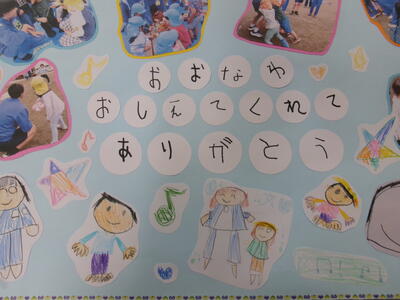 おおなわ
おしえてくれて
ありがとう